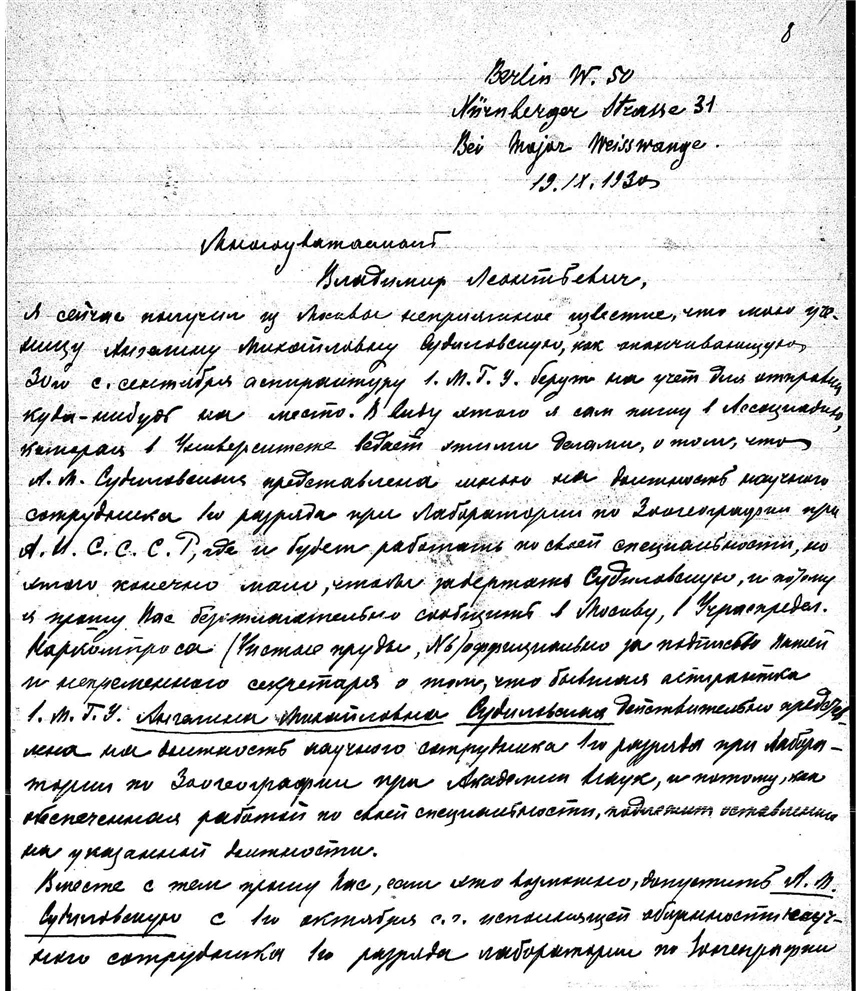 8
Berlin W. 50
Nürnberger Strasse 31
Bei Major Weisswange.
19.IX.1930
Многоуважаемый
Владимир Леонтьевич,
Я сейчас получил из Москвы неприятное известие, что мою уче-
ницу Ангелину Михайловну Судиловскую, как оканчивающую
30го с. сентября аспирантуру 1. М.Г.У. берут на учет для отправки
куда-нибудь на место. В виду этого я сам пишу в Ассоциацию,
которая в Университете ведает этими делами, о том, что
А. М. Судиловская представлена мною на должность научного
сотрудника 1го разряда при Лаборатории по Зоогеографии при
А. И. С. С. С. Р, где и будет работать по своей специальности, но
этого конечно мало, чтобы задержать Судиловскую, и потому
я прошу Вас безотлагательно сообщить в Москву, в Учраспредел.
Наркомпроса (Чистые пруды, №6) оффициально за подписью Вашей
и непременного секретаря о том, что бывшая аспирантка
1. М.Г.У. Ангелина Михайловна Судиловская действительно представ-
лена на должность научного сотрудника 1го разряда при Лабора-
тории по Зоогеографии при Академии Наук, и потому, как
обеспеченная работой по своей специальности, подлежит оставлению
на указанной должности.
Вместе с тем прошу Вас, если это возможно, допустить А. М.
Судиловскую с 1го октября с.г. исполняющей обязанности науч-
ного сотрудника 1го разряда лаборатории по Зоогеографии